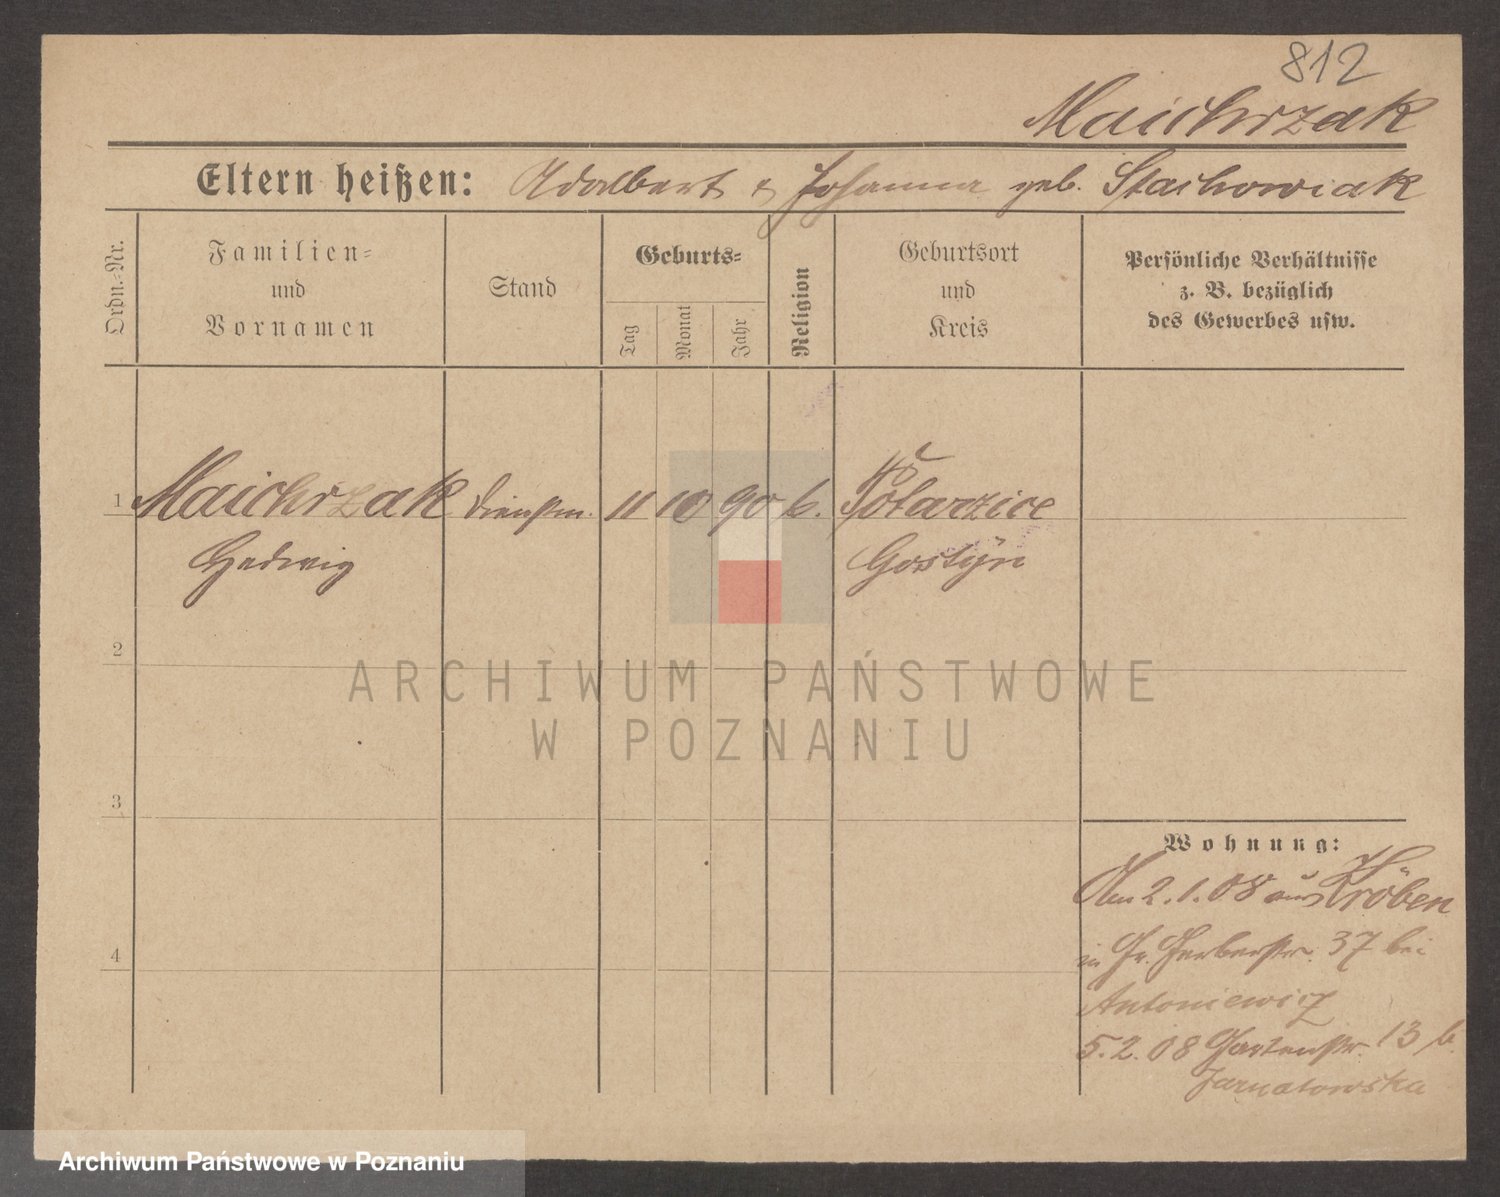 812
Maichrzak
Eltern heißen: Adalbert & Johanna geb. Stachowiak
Ordn.-Nr.
Familien-
und
Vornamen
Stand
Geburts-
Tag
Monat
Jahr
Religion
Geburtsort
und
Kreis
Persönliche Verhältnisse
z. B. bezüglich
des Gewerbes usw.
1 Maichrzak Dienstm. 11 10 90 k.
Hedwig Gostyn
2
3
4
Wohnung:
Am 2.1.08 aus Kröben
in Gr. Gerberstr. 37 bei
Antoniewicz
5.2.08 Gartenstr. 13 b.
Jarnatowska
ARCHIWUM PAŃSTWOWE
W POZNANIU
Archiwum Państwowe w Poznaniu